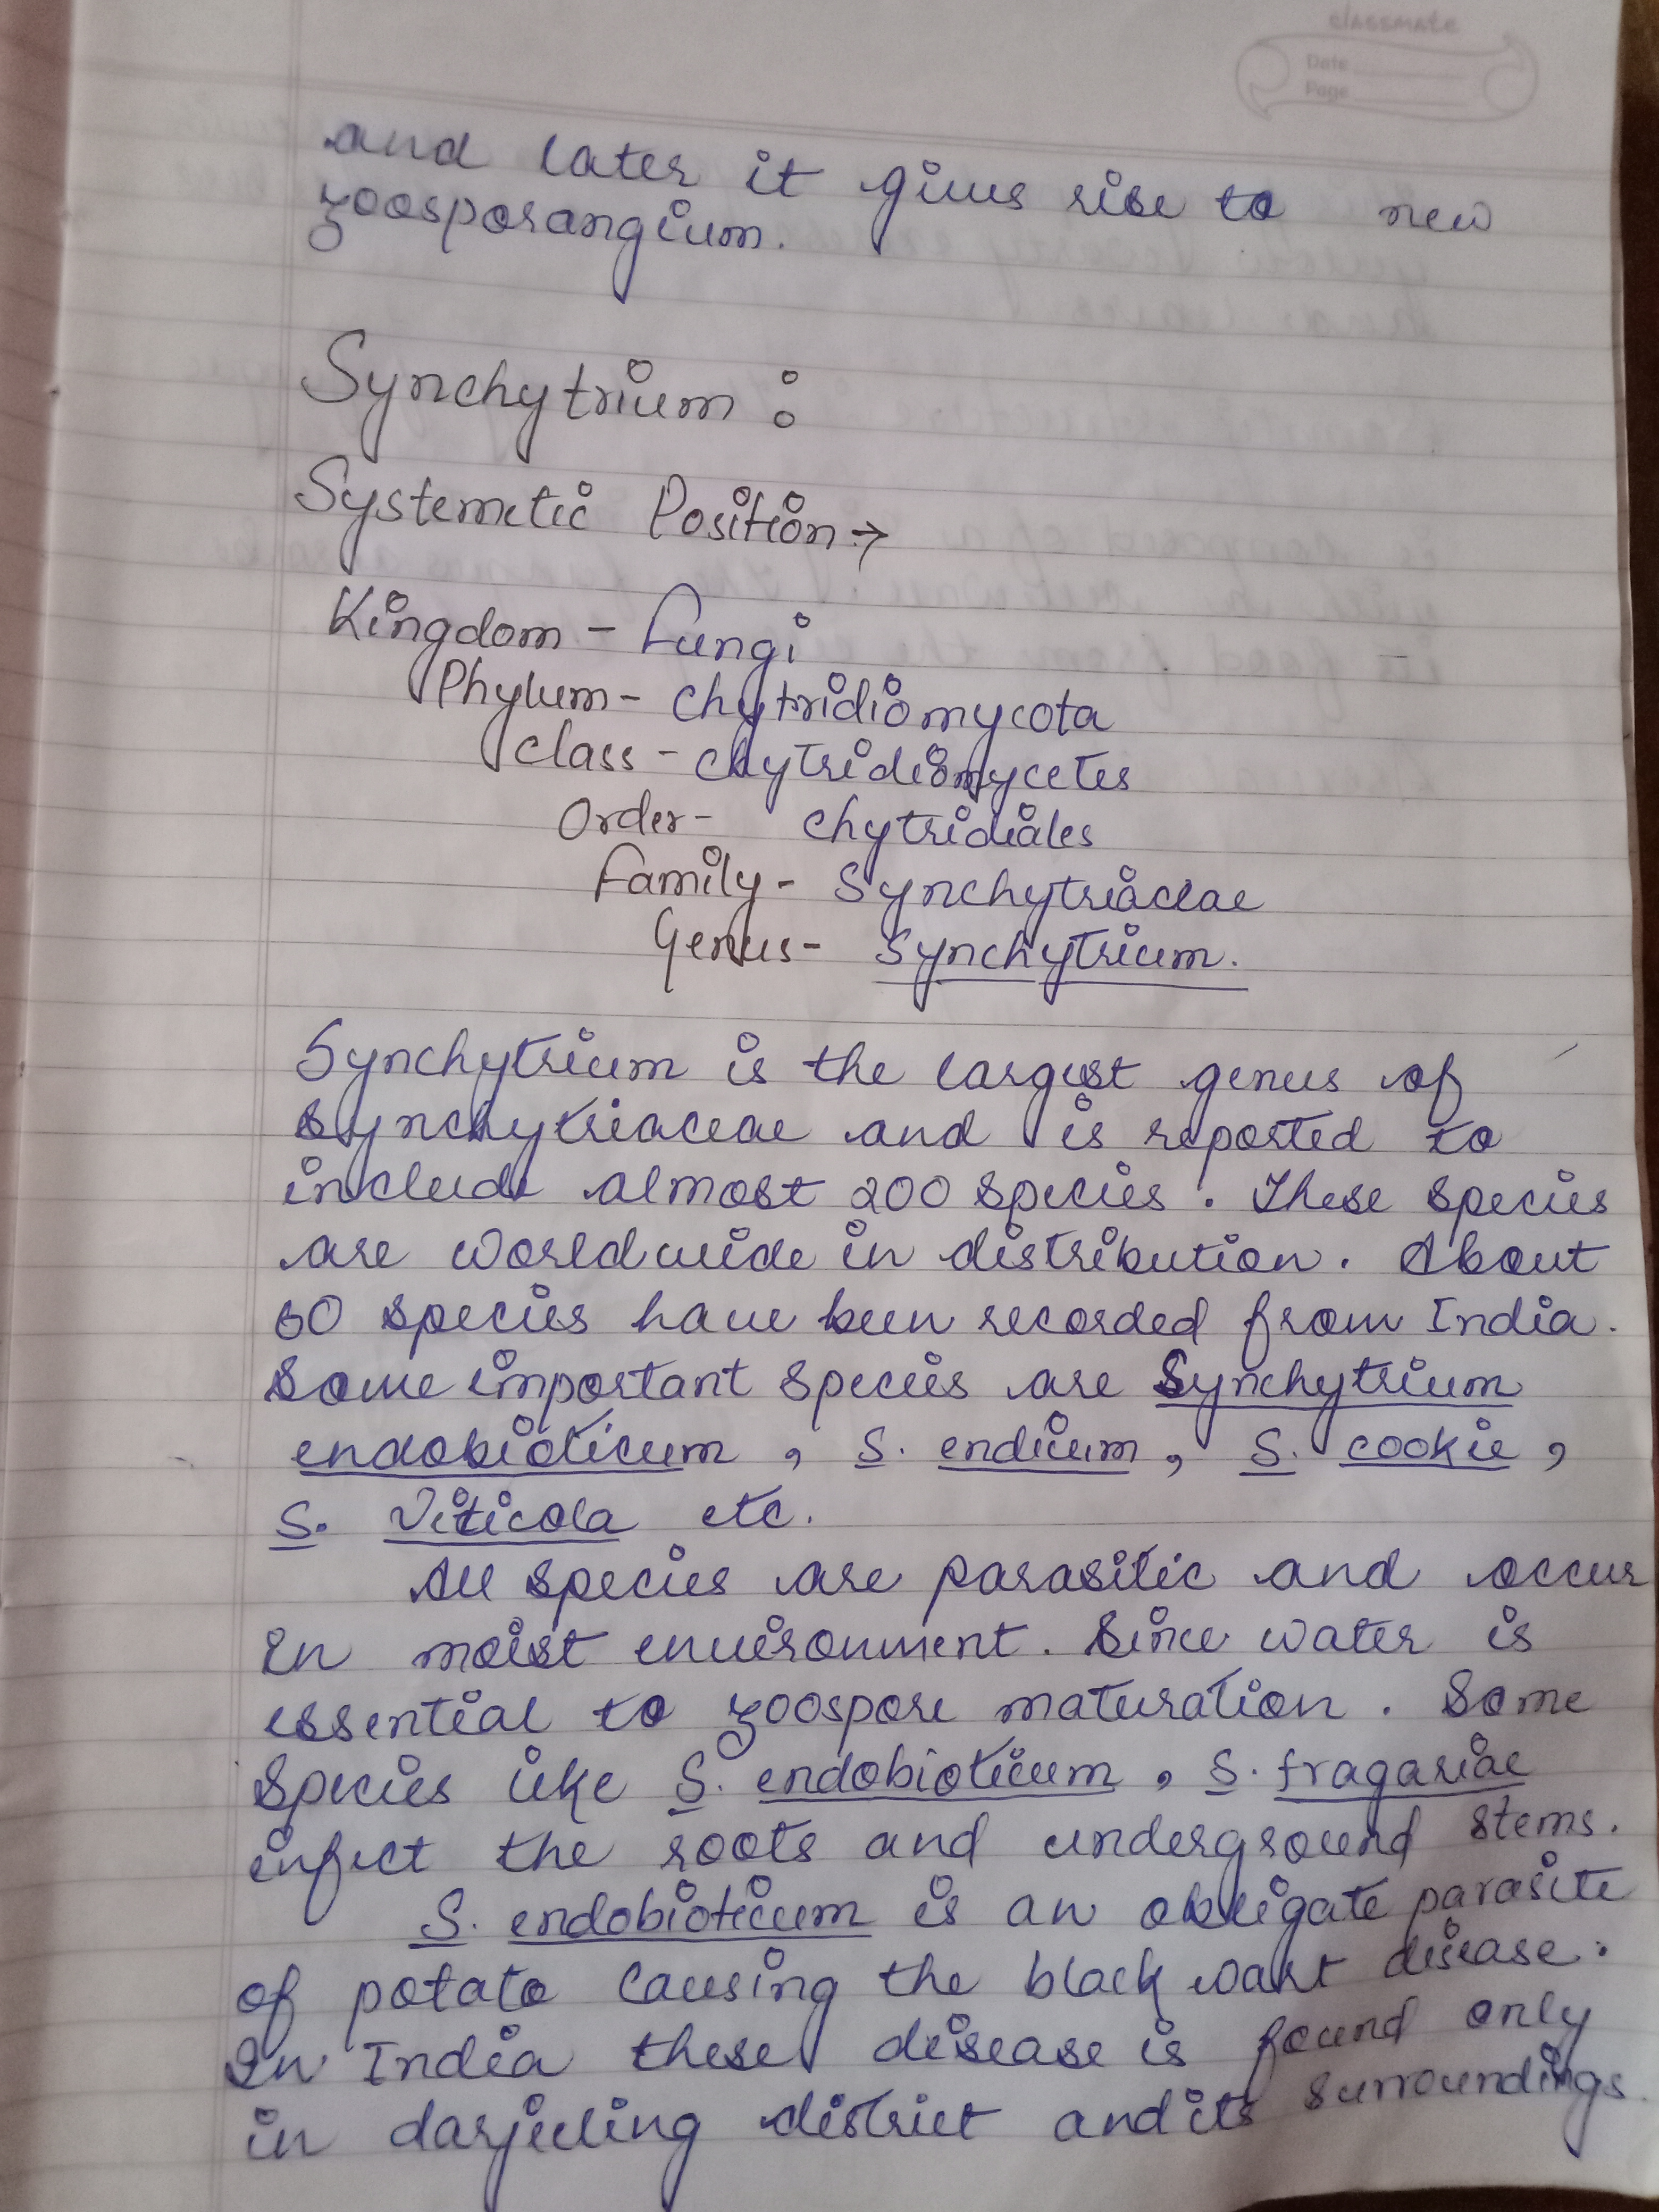 classmate
Date
Page
and later it gives rise to new
zoosporangium.
Synchytrium :
Systemetic Position →
Kingdom - Fungi
Phylum - Chytridiomycota
Class - Chytridiomycetes
Order - Chytridiales
Family - Synchytriaceae
Genus - Synchytrium.
Synchytrium is the largest genus of
Synchytriaceae and is reported to
include almost 200 species. These species
are worldwide in distribution. About
60 species have been recorded from India.
Some important species are Synchytrium
endobioticum, S. endicum, S. cookie,
S. Viticola etc.
All species are parasitic and occur
in moist environment. Since water is
essential to zoospore maturation. Some
Species like S. endobioticum, S. fragariae
infect the roots and underground stems.
S. endobioticum is an obligate parasite
of potato causing the black wart disease.
In India these disease is found only
in darjeeling district and its surroundings